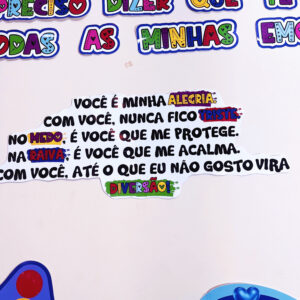 PRECISO DIZER QUE TE
TODAS AS MINHAS EMO
VOCÊ É MINHA ALEGRIA.
COM VOCÊ, NUNCA FICO TRISTE.
NO MEDO, É VOCÊ QUE ME PROTEGE.
NA RAIVA, É VOCÊ QUE ME ACALMA.
COM VOCÊ, ATÉ O QUE EU NÃO GOSTO VIRA
DIVERSÃO!